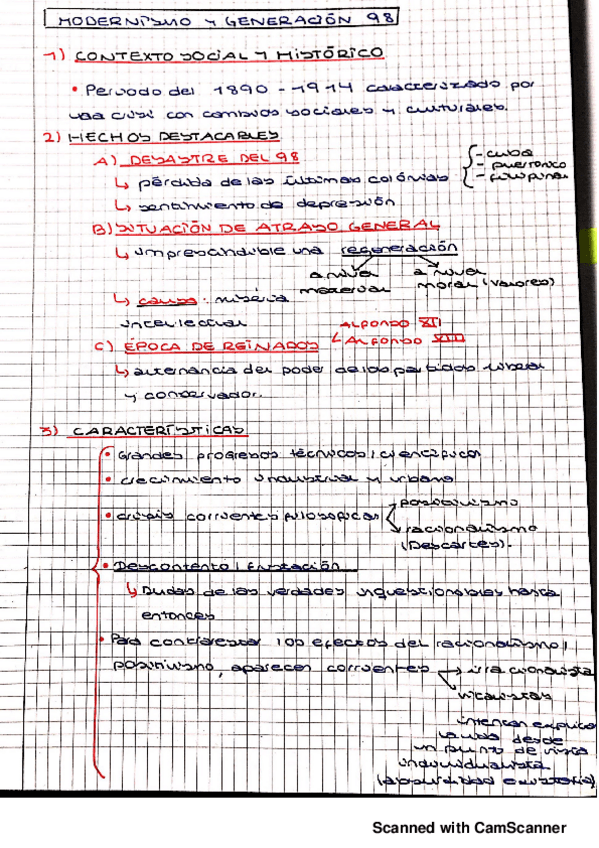 MODERNISMO Y GENERACIÓN 98
1) CONTEXTO SOCIAL Y HISTÓRICO
• Periodo del 1890 - 1914 caracterizado por
una crisis con cambios sociales y culturales.
2) HECHOS DESTACABLES
A) DESASTRE DEL 98
↳ pérdida de las últimas colónias { - cuba
- puerto rico
- filipinas
↳ sentimiento de depresión
B) SITUACIÓN DE ATRASO GENERAL
↳ imprescindible una regeneración
a nivel material
a nivel moral (valores)
↳ causa: miséria
intelectual
C) ÉPOCA DE REINADOS
ALFONSO XII
ALFONSO XIII
↳ alternancia del poder de los partidos liberal
y conservador.
3) CARACTERÍSTICAS
• Grandes progresos técnicos / científicos
• crecimiento industrial y urbano
• crisis corrientes filosóficas
positivismo
racionalismo
(Descartes).
• Descontento /
↳ Dudas de las verdades inquestionables hasta
entonces
• Para contrarestar los efectos del racionalismo /
positivismo, aparecen corrientes → irracionalista
vitalistas
intentan explicar
la vida desde
un punto de vista
individualista
Scanned with CamScanner